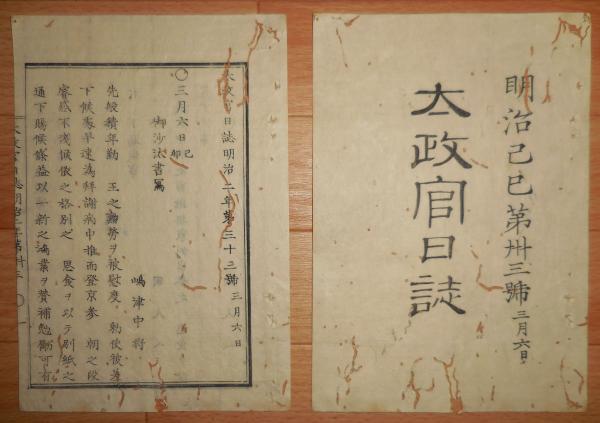 明治己巳第卅三號 三月六日
太政官日誌
太政官日誌明治二年第三十三號 三月六日
〇三月六日 己卯
御沙汰書寫
嶋津中將
先般積年勤 王之勤勞ヲ被慰度 勅使被差
下候處早速為拜謝病中推而登京參 朝之段
睿感不淺候依之格別之 恩食ヲ以テ別紙之
通下賜候條益以一新之鴻業ヲ賛補勉勵可有
太政官日誌明治二年第卅三